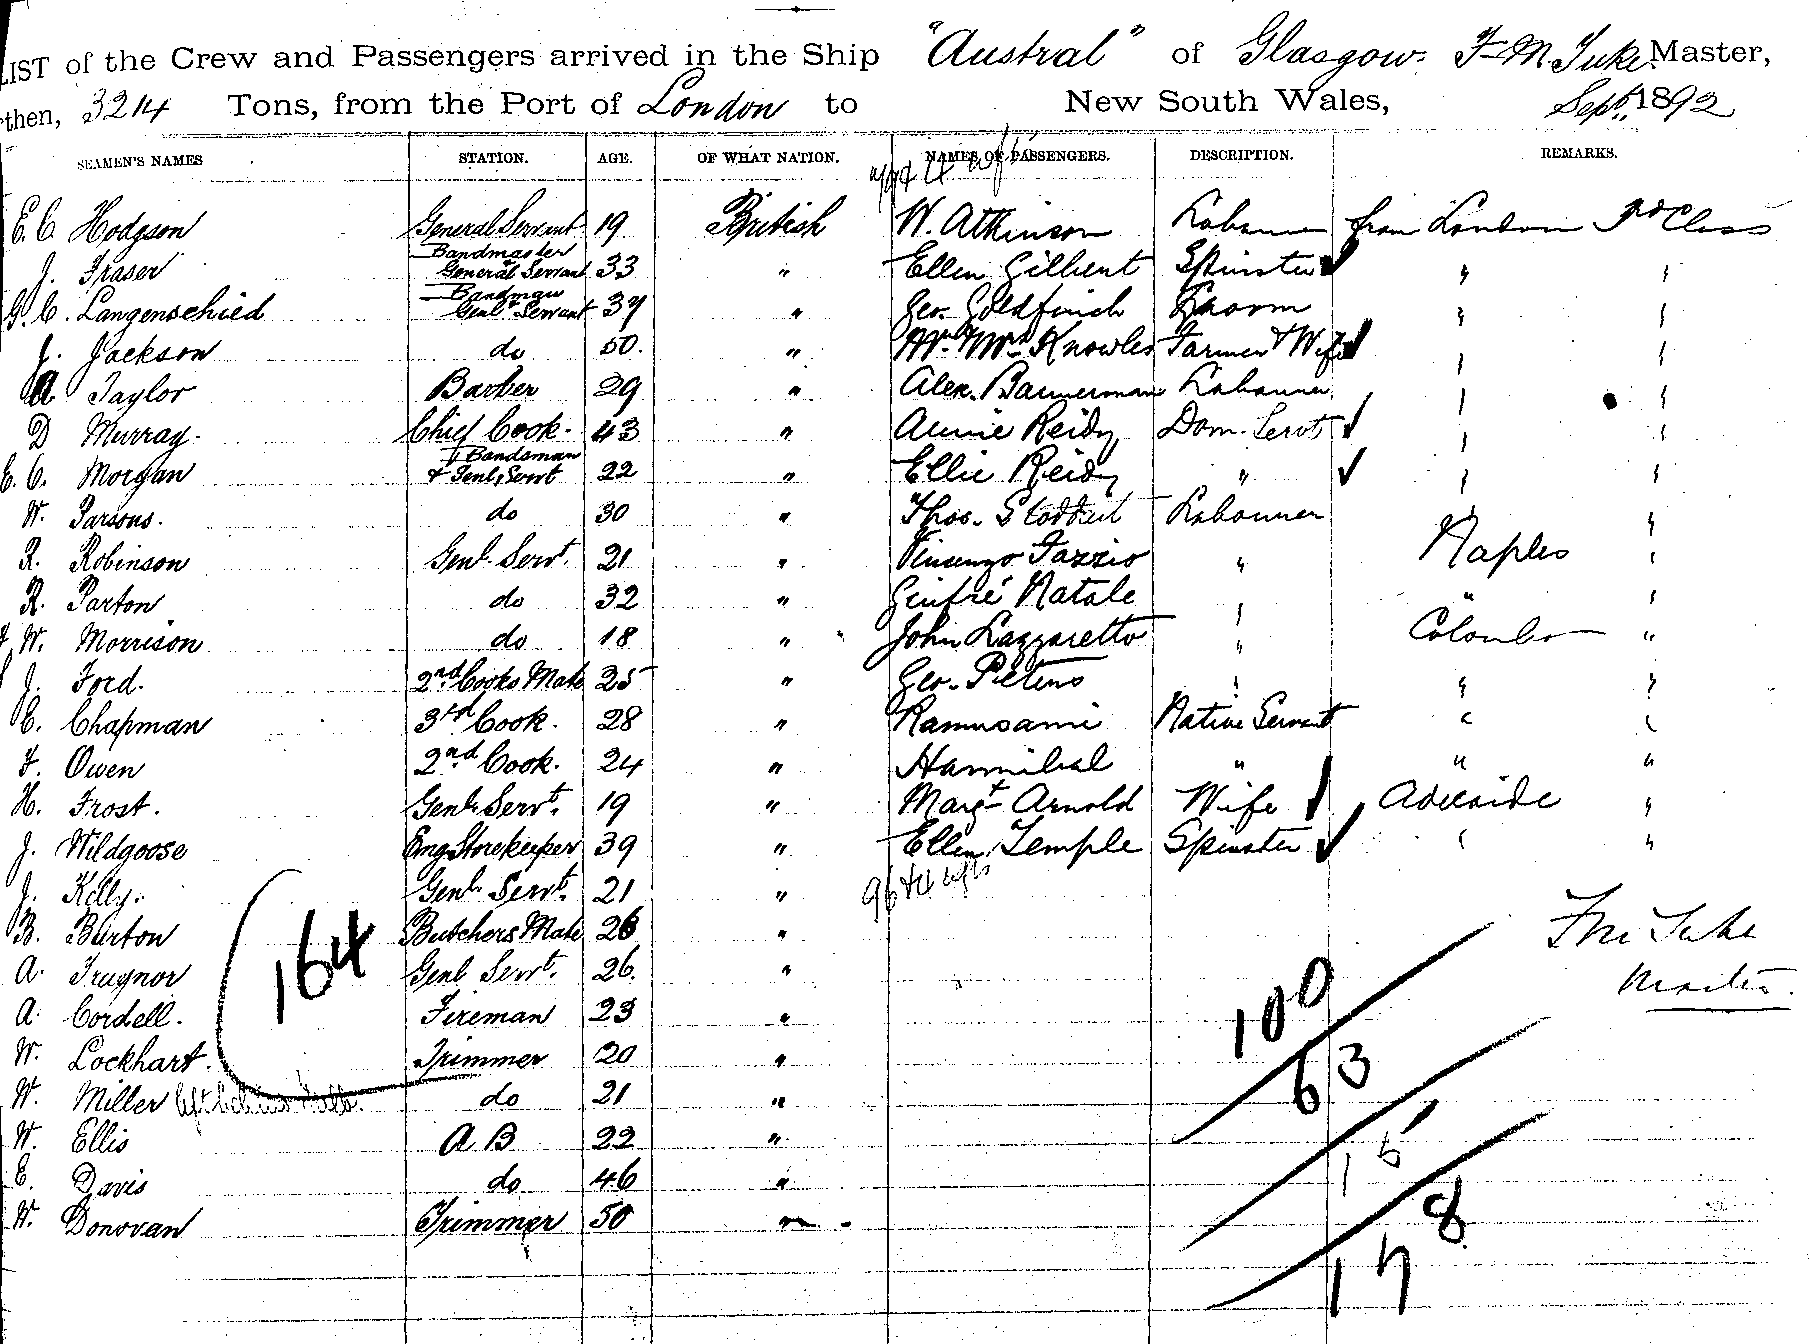 LIST of the Crew and Passengers arrived in the Ship "Austral" of Glasgow. F. M. Tuke Master,
then, 3214 Tons, from the Port of London to New South Wales, Sept. 1892
SEAMEN'S NAMES STATION. AGE. OF WHAT NATION. NAMES OF PASSENGERS. DESCRIPTION. REMARKS.
E. C. Hodgson General Servant 19 British W. Atkinson Labourer from London 3rd Class
J. Fraser Bandmaster General Servant 33 " Ellen Gilbert Spinster ✓ " "
G. C. Langenschied Bandman Genl Servant 37 " Geo. Goldfinch " "
J. Jackson do 50. " Mr. & Mrs. Knowles Farmer & Wife ✓ " "
A Taylor Barber 29 " Alex. Bannerman Labourer " "
D Murray. Chief Cook. 43 " Annie Reidy Dom. Servt ✓ " "
E. C. Morgan Bandsman & Genl. Servt 22 " Ellie Reidy " ✓ " "
W. Parsons. do 30 " Thos. Labourer " "
R. Robinson Genl. Servt. 21 " Vincenzo Fazzio " Naples "
R. Parton do 32 " Giufré Natale " " "
W. Morrison do 18 " John Lazzaretto " Colombo "
J. Ford. 2nd Cooks Mate 25 " Geo. Peters " " "
C. Chapman 3rd Cook. 28 " Ramusami Native Servant " "
F. Owen 2nd Cook. 24 " Hannibal " " "
H. Frost. Genl. Servt. 19 " Margt Arnold Wife ✓ Adelaide "
J. Wildgoose Eng Storekeeper 39 " Ellen Temple Spinster ✓ " "
J. Kelly. Genl. Servt. 21 "
B. Burton Butchers Mate 26 " F M Tuke
A. Traynor Genl Servt. 26. " Master.
164
A. Cordell. Fireman 23 " 100
W. Lockhart. Trimmer 20 " 63
W. Miller left behind do 21 "
W. Ellis A B 22 " 15
E. Davis do 46 "
W. Donovan Trimmer 50 " 8
17